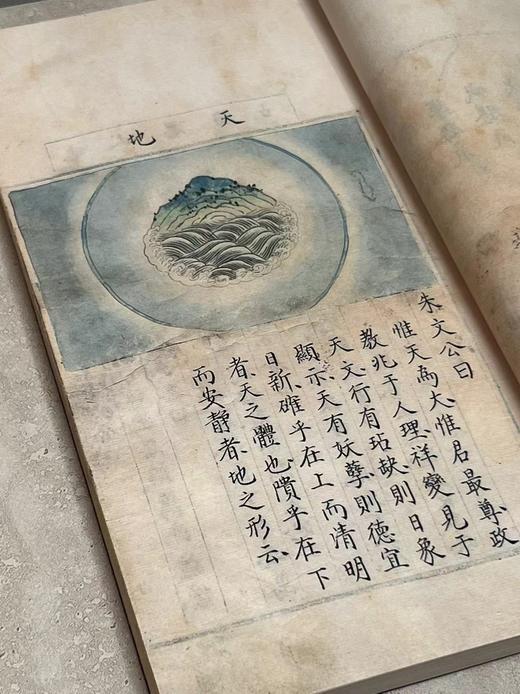 天地
朱文公曰
惟天為大惟君最尊政
教兆于人理祥變見于
天文行有玷缺則日象
顯示天有妖孽則德宜
日新確乎在上而清明
者天之體也隤乎在下
而安靜者地之形云